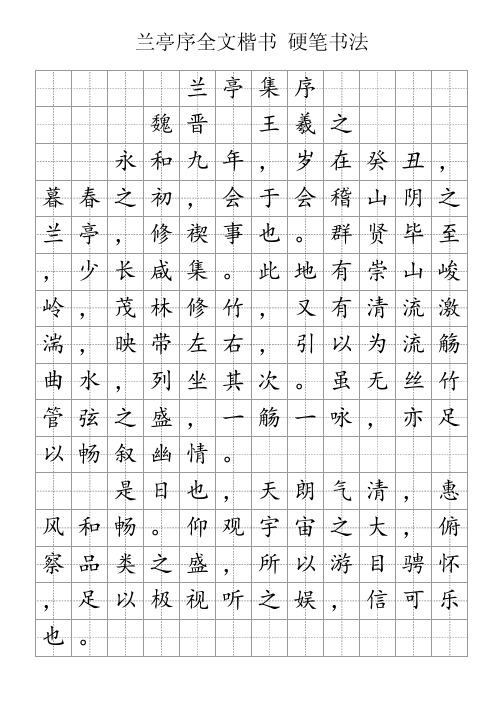 兰亭序全文楷书 硬笔书法
兰亭集序
魏晋 王羲之
永和九年，岁在癸丑，
暮春之初，会于会稽山阴之
兰亭，修禊事也。群贤毕至
，少长咸集。此地有崇山峻
岭，茂林修竹，又有清流激
湍，映带左右，引以为流觞
曲水，列坐其次。虽无丝竹
管弦之盛，一觞一咏，亦足
以畅叙幽情。
是日也，天朗气清，惠
风和畅。仰观宇宙之大，俯
察品类之盛，所以游目骋怀
，足以极视听之娱，信可乐
也。